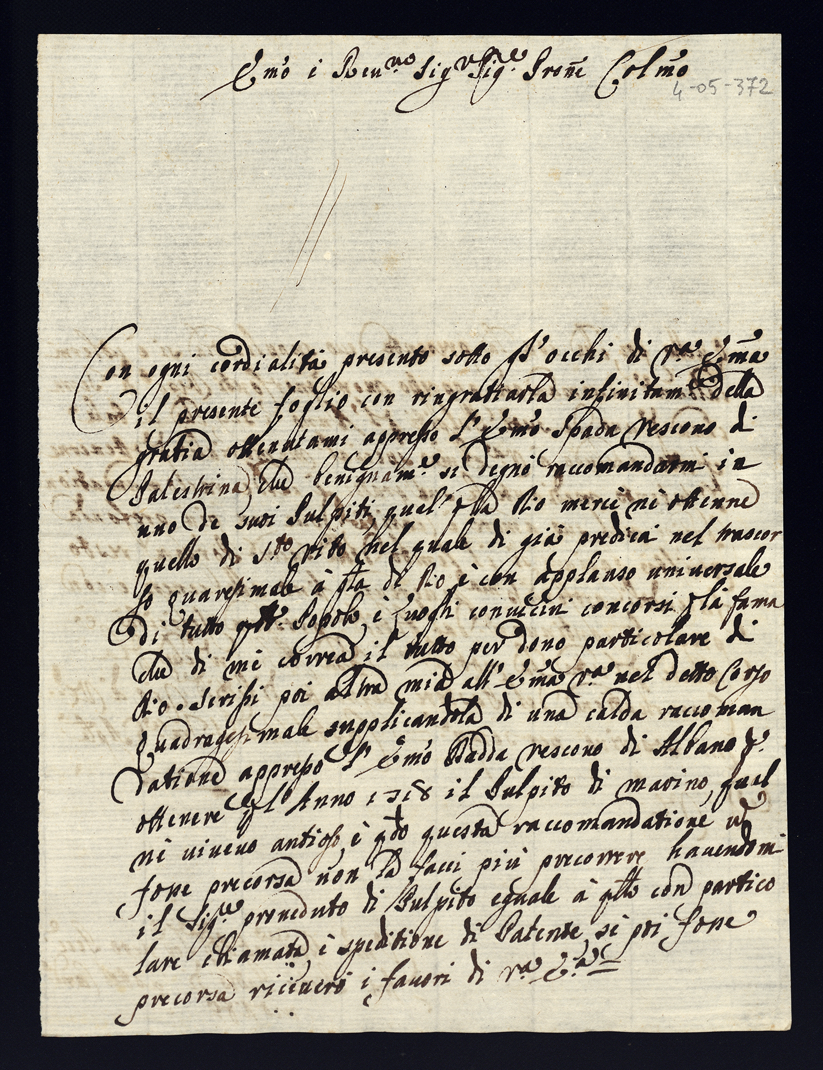 Emo i Reu.mo Sig.r Sig.re Prone Colmo
4-05-372
Con ogni cordialità presento sotto gl'occhi di V.ra Ema
il presente foglio con ringratiarla infinitam.te della
gratia ottenutami appresso l'Emo Spada Vescouo di
Palestrina, che benignam.te si degnò raccomandarmi in
uno de suoi Pulpiti, quel Dio mercè ni ottenne
quello di S.to Vito nel quale di già predicai nel trascor
so quaresimale à gla di Dio è con applauso uniuersale
di tutto Popolo, è luoghi conuicini concorsi p la fama
che di mè correa il tutto per dono particolare di
Dio. Scrissi poi altra mia all'Ema V.ra nel detto Corso
Quadragesimale supplicandola di una calda raccoman
datione appresso l'Emo Vescouo di Albano p.
ottenere p l'Anno 1718 il Pulpito di Marino, quel
ni uiueuo antioso, è qdo questa raccomandatione
fosse precorsa non la facci più precorrere hauendomi
il Sig.re proueduto di Pulpito eguale à con partico
lare chiamata è speditione di Patente, si poi fosse
precorsa riceuerò i fauori di V.ra E.za